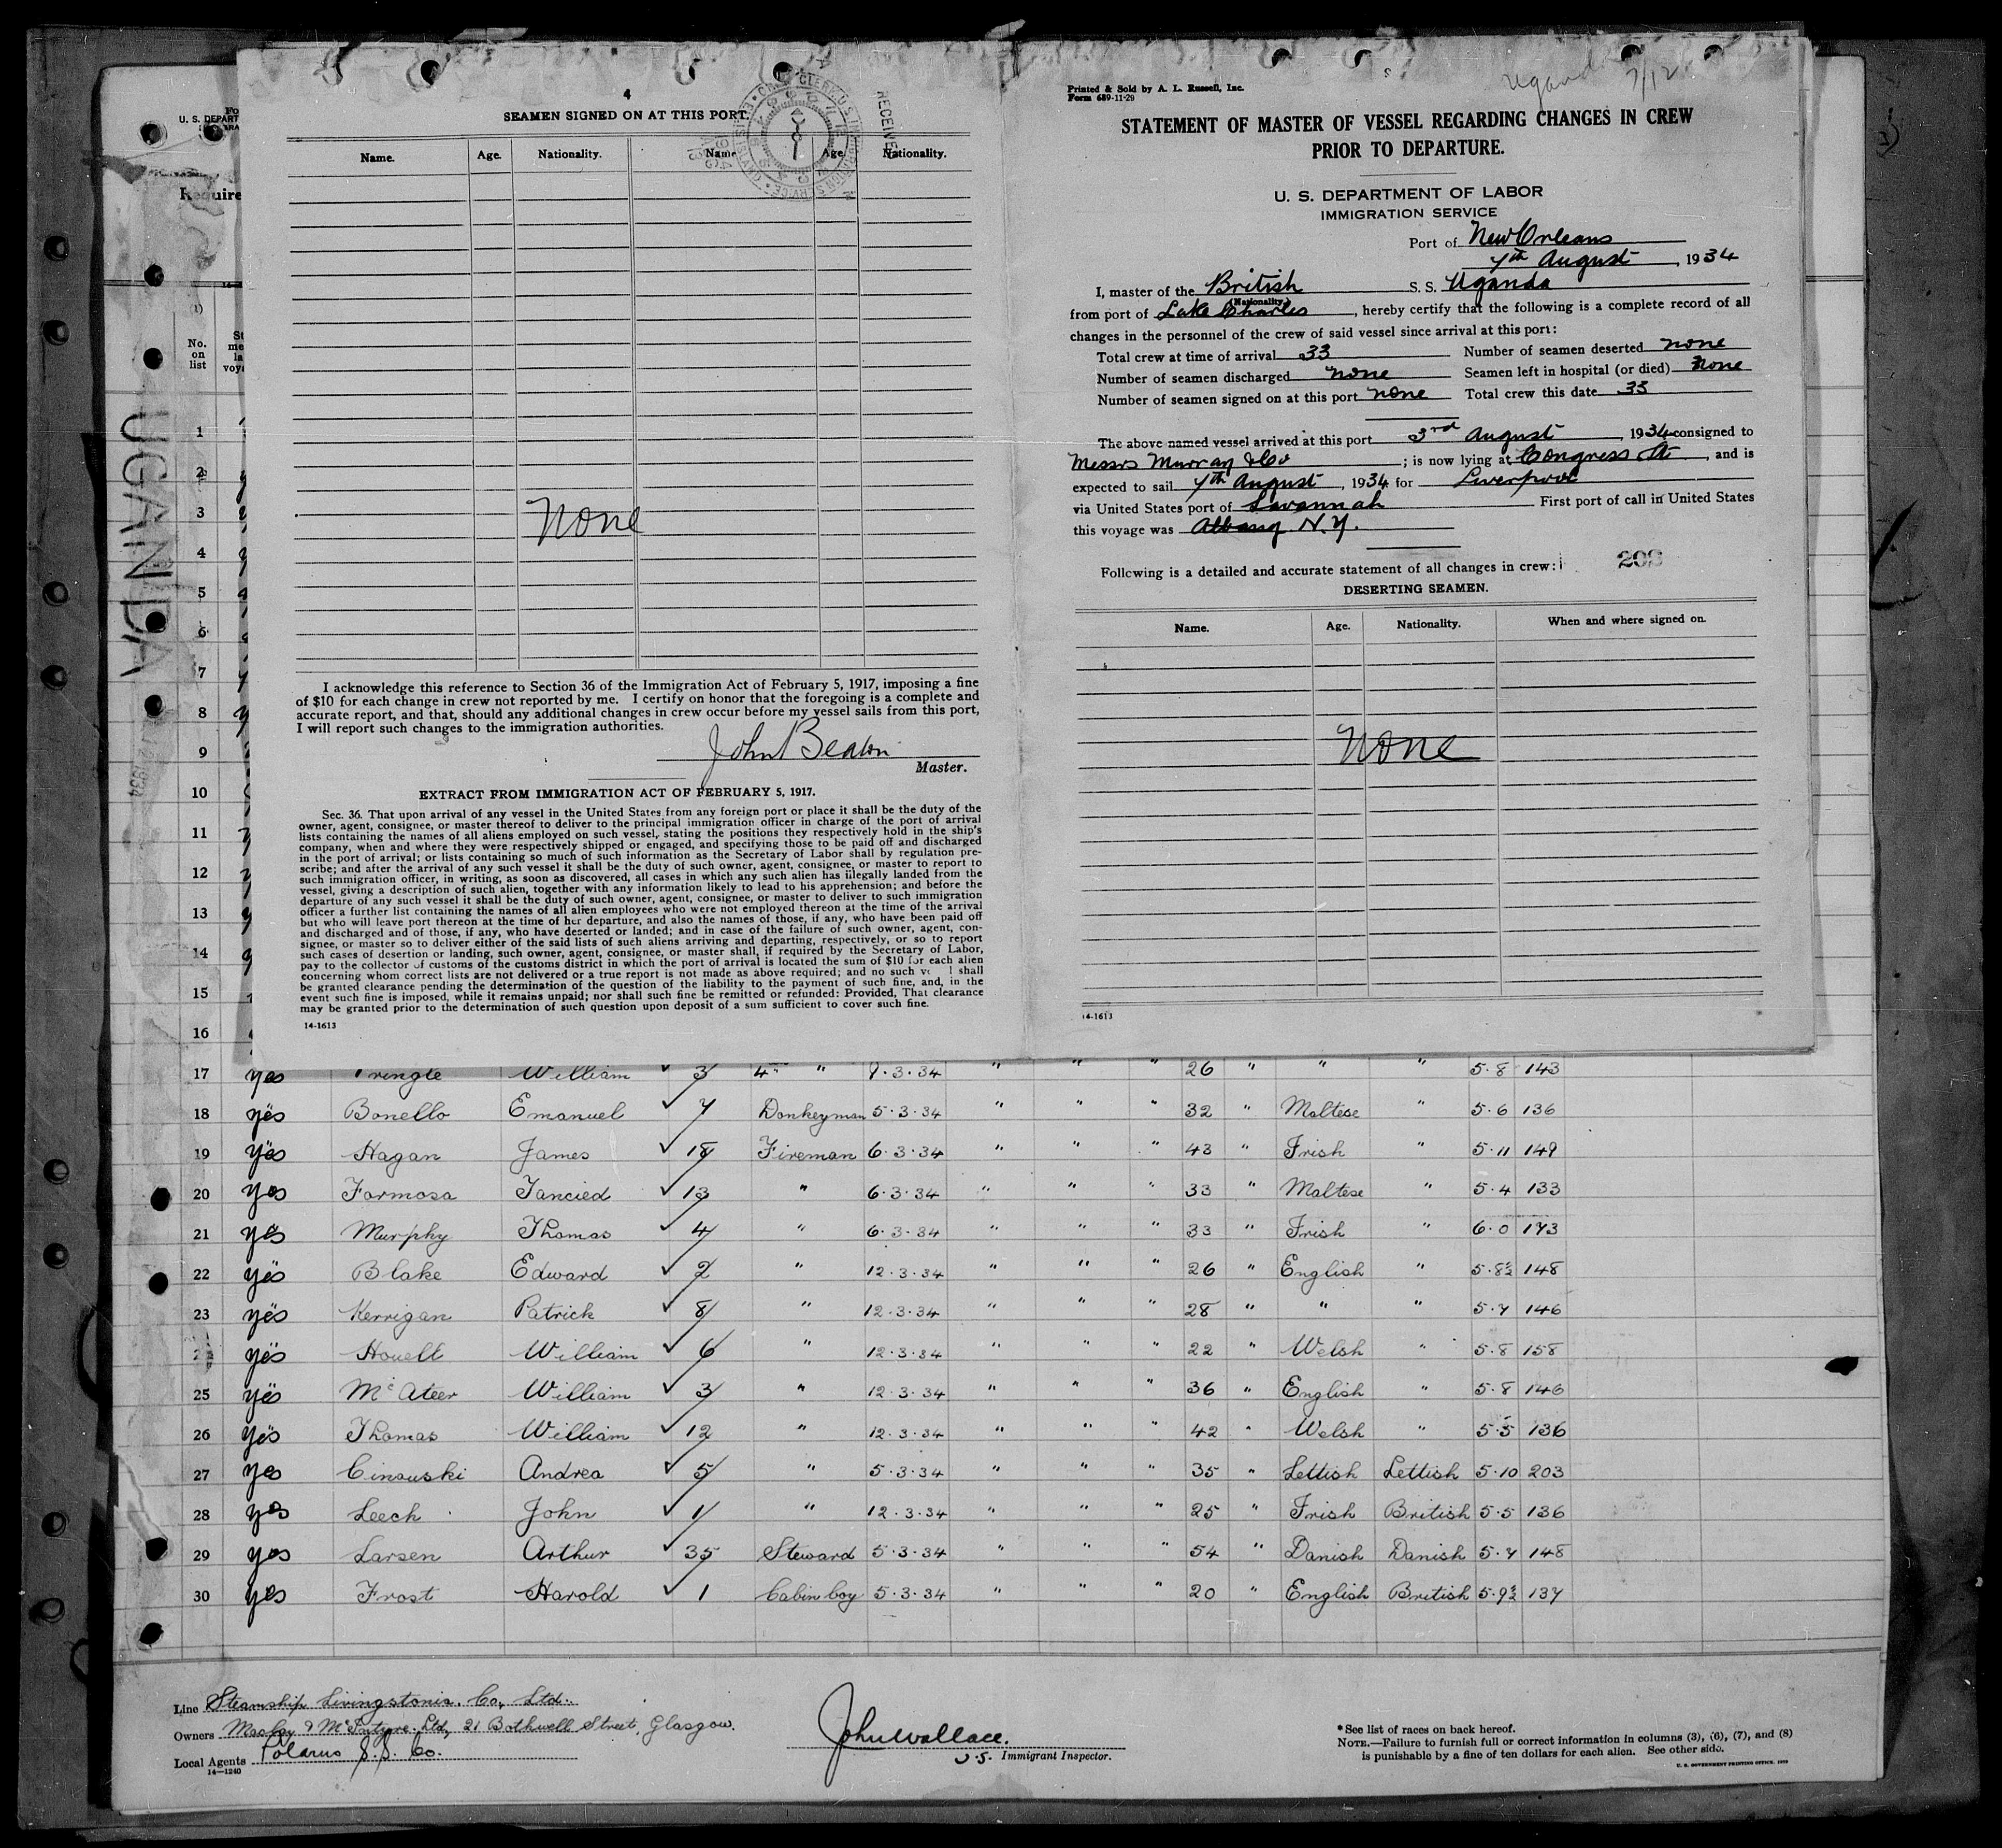 Uganda 7/12
4
SEAMEN SIGNED ON AT THIS PORT.
Name. Age. Nationality. Name Age. Nationality.
RECEIVE
None
I acknowledge this reference to Section 36 of the Immigration Act of February 5, 1917, imposing a fine
of $10 for each change in crew not reported by me. I certify on honor that the foregoing is a complete and
accurate report, and that, should any additional changes in crew occur before my vessel sails from this port,
I will report such changes to the immigration authorities.
John Beaton
Master.
EXTRACT FROM IMMIGRATION ACT OF FEBRUARY 5, 1917.
Sec. 36. That upon arrival of any vessel in the United States from any foreign port or place it shall be the duty of the
owner, agent, consignee, or master thereof to deliver to the principal immigration officer in charge of the port of arrival
lists containing the names of all aliens employed on such vessel, stating the positions they respectively hold in the ship's
company, when and where they were respectively shipped or engaged, and specifying those to be paid off and discharged
in the port of arrival; or lists containing so much of such information as the Secretary of Labor shall by regulation pre-
scribe; and after the arrival of any such vessel it shall be the duty of such owner, agent, consignee, or master to report to
such immigration officer, in writing, as soon as discovered, all cases in which any such alien has illegally landed from the
vessel, giving a description of such alien, together with any information likely to lead to his apprehension; and before the
departure of any such vessel it shall be the duty of such owner, agent, consignee, or master to deliver to such immigration
officer a further list containing the names of all alien employees who were not employed thereon at the time of the arrival
but who will leave port thereon at the time of her departure, and also the names of those, if any, who have been paid off
and discharged and of those, if any, who have deserted or landed; and in case of the failure of such owner, agent, con-
signee, or master so to deliver either of the said lists of such aliens arriving and departing, respectively, or so to report
such cases of desertion or landing, such owner, agent, consignee, or master shall, if required by the Secretary of Labor,
pay to the collector of customs of the customs district in which the port of arrival is located the sum of $10 for each alien
concerning whom correct lists are not delivered or a true report is not made as above required; and no such ve l shall
be granted clearance pending the determination of the question of the liability to the payment of such fine, and, in the
event such fine is imposed, while it remains unpaid; nor shall such fine be remitted or refunded: Provided, That clearance
may be granted prior to the determination of such question upon deposit of a sum sufficient to cover such fine.
14-1613
Printed & Sold by A. L. Russell, Inc.
Form 689-11-29
STATEMENT OF MASTER OF VESSEL REGARDING CHANGES IN CREW
PRIOR TO DEPARTURE.
U. S. DEPARTMENT OF LABOR
IMMIGRATION SERVICE
Port of New Orleans
7th August, 1934
I, master of the British S. S. Uganda
(Nationality)
from port of Lake Charles, hereby certify that the following is a complete record of all
changes in the personnel of the crew of said vessel since arrival at this port:
Total crew at time of arrival 33 Number of seamen deserted none
Number of seamen discharged none Seamen left in hospital (or died) none
Number of seamen signed on at this port none Total crew this date 33
The above named vessel arrived at this port 3rd August, 1934 consigned to
Messrs Murray & Co; is now lying at Congress St, and is
expected to sail 7th August, 1934 for Liverpool
via United States port of Savannah First port of call in United States
this voyage was Albany N.Y.
Following is a detailed and accurate statement of all changes in crew: 208
DESERTING SEAMEN.
Name. Age. Nationality. When and where signed on.
None
14-1613
U. S. DEPART
Require
No. on list
UGANDA
1
2
3
4
5
6
7
8
9
10
11
12
13
14
15
16
17 yes Pringle William ✓ 3 4th " 7.3.34 " " " 26 " " " 5.8 143
18 yes Bonello Emanuel ✓ 7 Donkeyman 5.3.34 " " " 32 " Maltese " 5.6 136
19 yes Hagan James ✓ 18 Fireman 6.3.34 " " " 43 " Irish " 5.11 149
20 yes Formosa Tancied ✓ 13 " 6.3.34 " " " 33 " Maltese " 5.4 133
21 yes Murphy Thomas ✓ 4 " 6.3.34 " " " 33 " Irish " 6.0 173
22 yes Blake Edward ✓ 2 " 12.3.34 " " " 26 " English " 5.8½ 148
23 yes Kerrigan Patrick ✓ 8 " 12.3.34 " " " 28 " " " 5.7 146
yes Howell William ✓ 6 " 12.3.34 " " " 22 " Welsh " 5.8 158
25 yes McAteer William ✓ 3 " 12.3.34 " " " 36 " English " 5.8 146
26 yes Thomas William ✓ 12 " 12.3.34 " " " 42 " Welsh " 5.5 136
27 yes Cinouski Andrea ✓ 5 " 5.3.34 " " " 35 " Lettish Lettish 5.10 203
28 yes Leech John ✓ 1 " 12.3.34 " " " 25 " Irish British 5.5 136
29 yes Larsen Arthur ✓ 35 Steward 5.3.34 " " " 54 " Danish Danish 5.7 148
30 yes Frost Harold ✓ 1 Cabin boy 5.3.34 " " " 20 " English British 5.9½ 137
Line Steamship Livingstonia Co, Ltd.
Owners Maclay & McIntyre Ltd, 21 Bothwell Street, Glasgow.
Local Agents Polarus S.S. Co.
14—1240
John Wallace.
U.S. Immigrant Inspector.
*See list of races on back hereof.
NOTE.—Failure to furnish full or correct information in columns (3), (6), (7), and (8)
is punishable by a fine of ten dollars for each alien. See other side.
U. S. GOVERNMENT PRINTING OFFICE